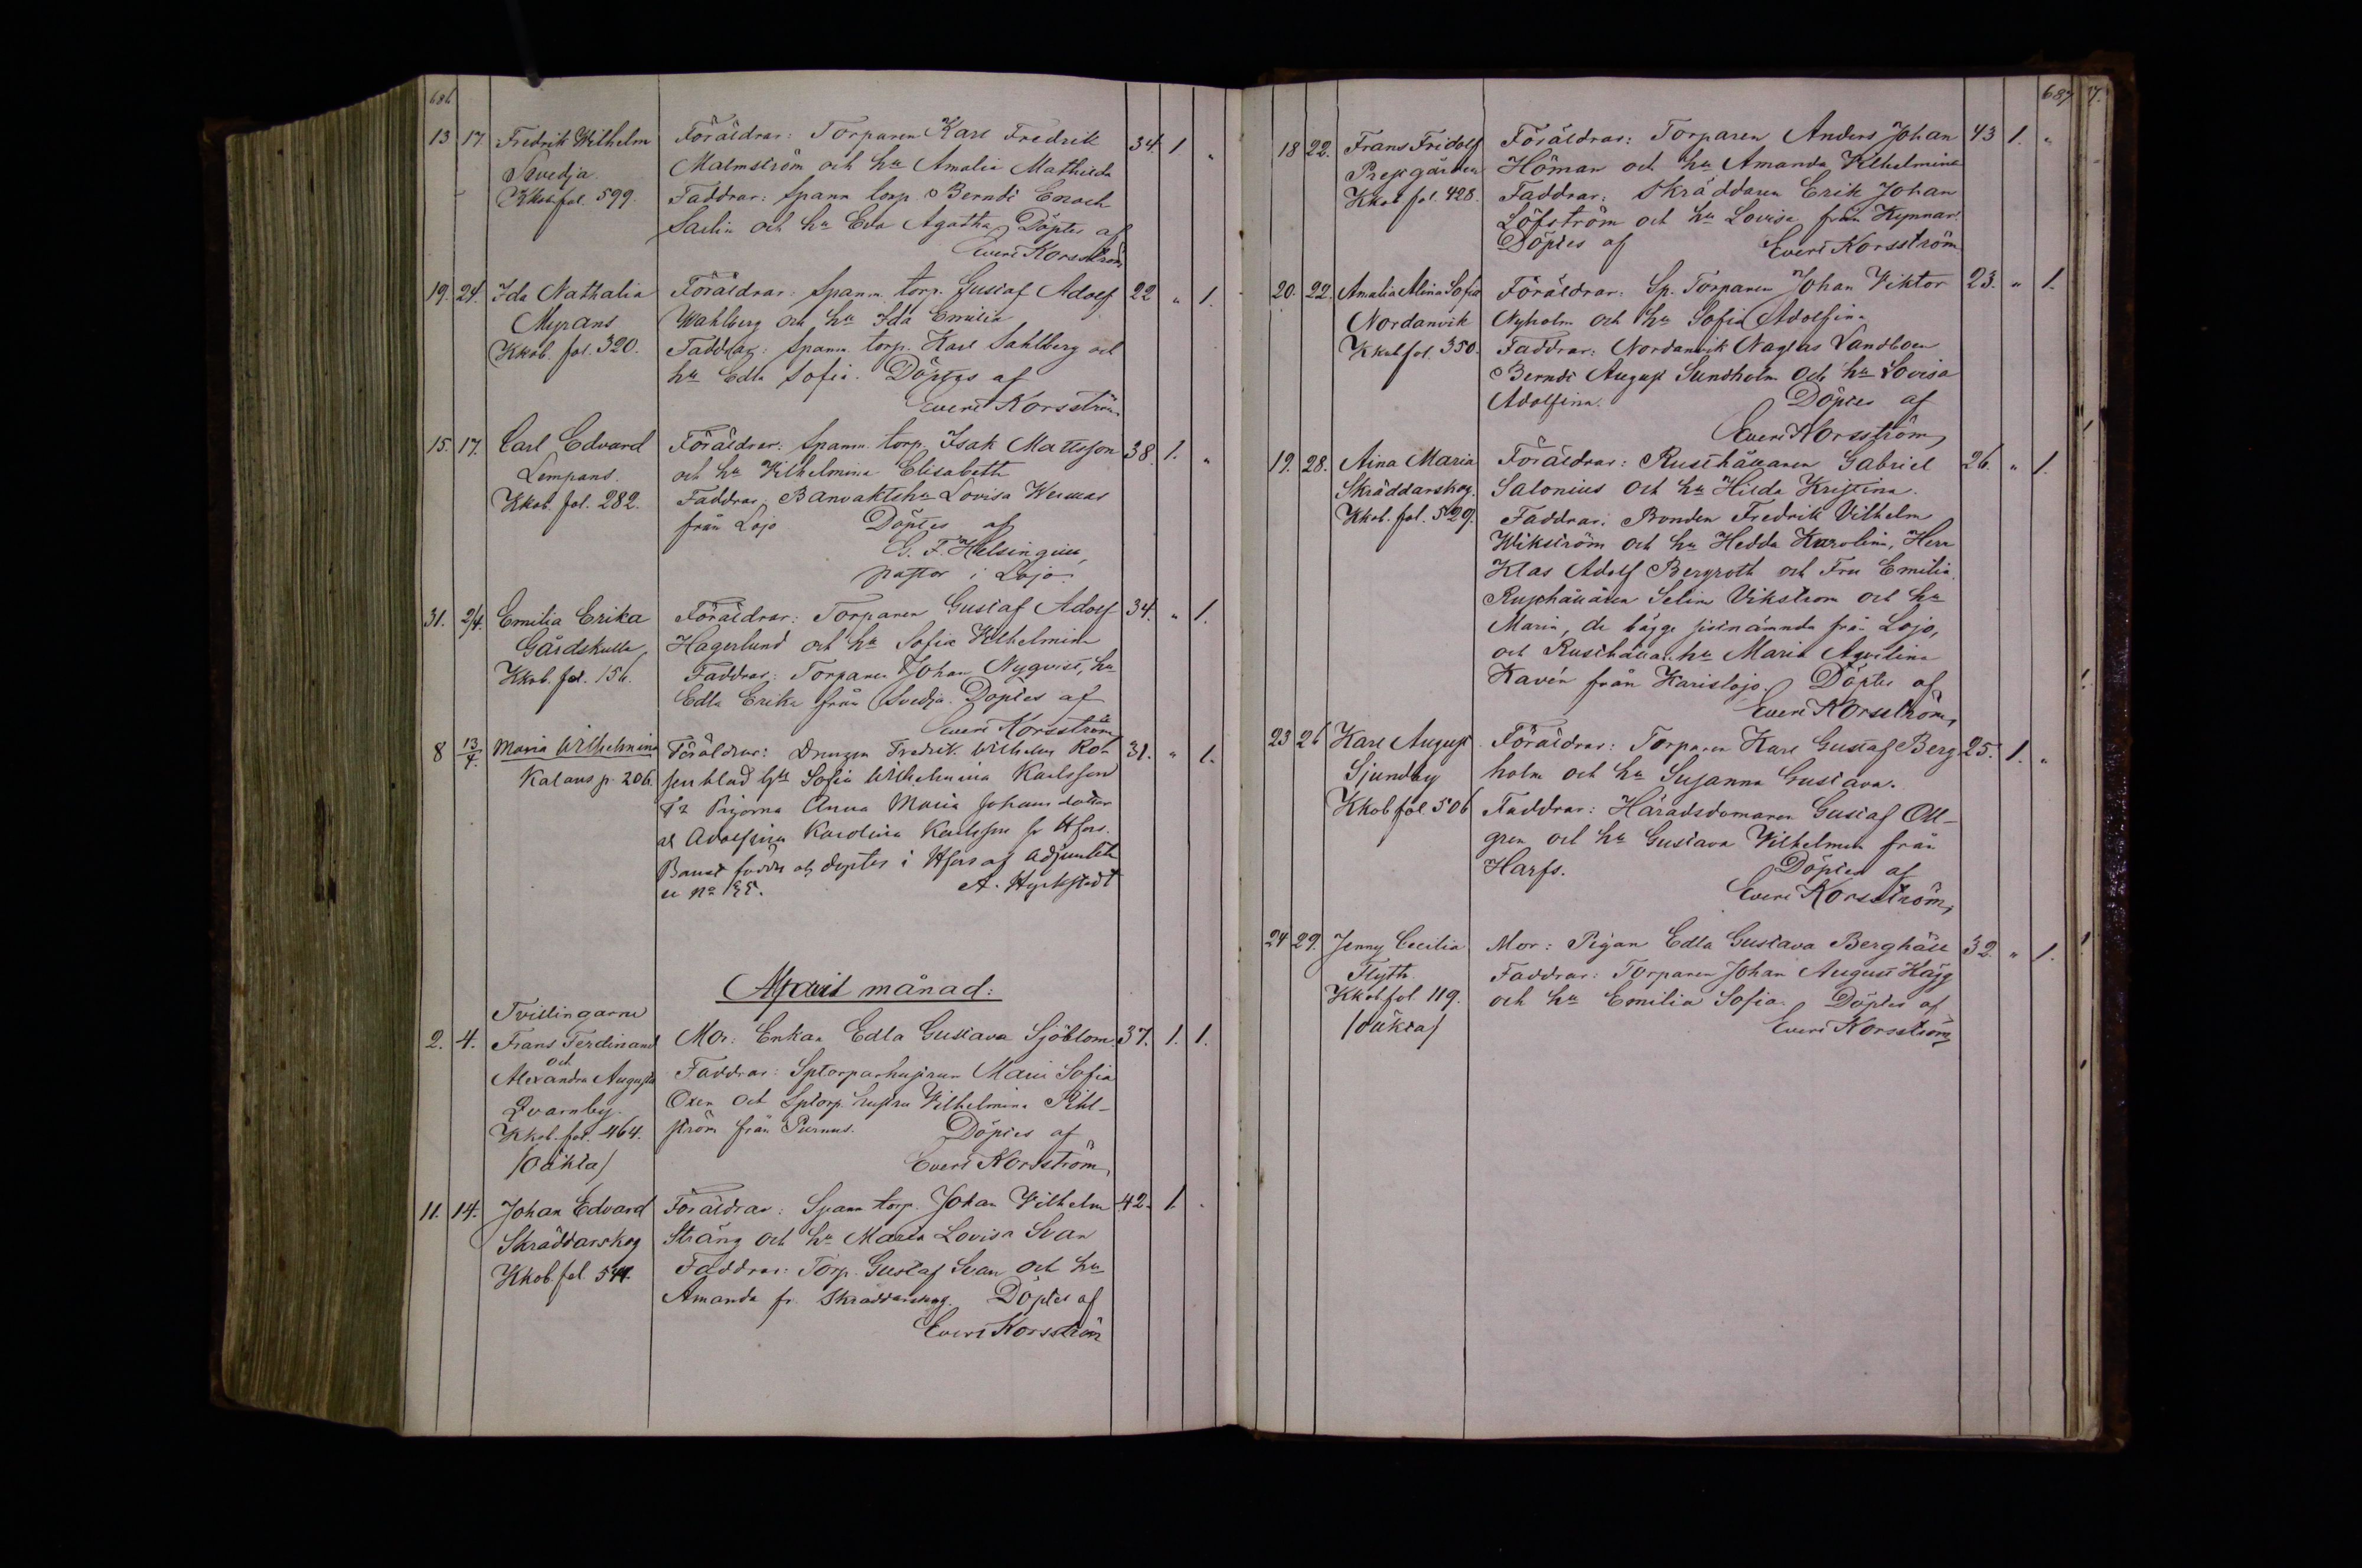 686
13 17. Fredrik Wilhelm Föräldrar: Torparen Karl Fredrik 34. 1 "
Svedja. Malmström och hu Amalia Mathilda
Kkob fol. 599. Faddrar: Spann torp. Berndt Enoch
Sarlin och hu Eva Agatha Döptes af
Evert Korsström
19. 24. Ida Nathalia Föräldrar: Spann. torp. Gustaf Adolf 22 " 1.
Myrans Wahlberg och hu Ida Emilia
Kkob. fol. 320. Faddrar: Spann. torp. Karl Sahlberg och
hu Edla Sofia. Döptes af
Evert Korsström
15. 17. Carl Edvard Föräldrar: Spann. torp. Isak Mattsson 38. 1. "
Lempans. och hu Vilhelmina Elisabeth
Kkob. fol. 282. Faddrar: Banvaktshu Lovisa
från Lojo Döptes af
G. F. Helsingius,
pastor i Lojo.
31. 2/4. Emilia Erika Föräldrar: Torparen Gustaf Adolf 34. " 1.
Gårdskulla, Hagerlund och hu Sofia Vilhelmina
Kkob. fol. 156. Faddrar: Torparen Johan Nyqvist, hu
Edla Erika från Svedja. Döptes af
Evert Korsström
8 13/4. Maria Wilhelmina Föräldrar: Drengen Fredrik Wilhelm Ro 31. " 1.
Kalans p. 206. hu Sofia Wilhelmina Karlsson
Pigorna Anna Maria Johans dotter
Adolfina Karolina Karlsson fr Hfors.
Barnet föddes och döptes i Hfors af adjunkten
A. Hyrkstedt
April månad:
Tvillingarne
2. 4. Frans Ferdinand Mor: Enkan Edla Gustava Sjöblom. 37. 1. 1.
och
Alexandra Augusta Faddrar: Sptorparhustrun Maria Sofia
Qvarnby. Oxen och Sptorp. hustru Vilhelmina Pihl-
Kkob. fol. 464. ström från Purnus. Döptes af
/Oäkta/ Evert Korsström,
11. 14. Johan Edvard Föräldrar: Spann torp. Johan Vilhelm 42. 1. "
Skräddarskog Sträng och hu Maria Lovisa Svan
Kkob. fol. 541. Faddrar: Torp. Gustaf Svan och hu
Amanda fr. Skräddarskog. Döptes af
Evert Korsström
687 7.
18 22. Frans Fridolf Föräldrar: Torparen Anders Johan 43 1. "
Prestgården Höman och hu Amanda Vilhelmina
Kkob fol. 428. Faddrar: Skräddaren Erik Johan
Löfström och hu Lovisa från Kynnar.
Döptes af Evert Korsström
20. 22. Amalia Alina Sofia Föräldrar: Sp. Torparen Johan Viktor 23. " 1.
Nordanvik Nyholm och hu Sofia Adolfina
Kkob fol. 350. Faddrar: Nordanvik Naglas Landboen
Berndt August Sundholm och hu Lovisa
Adolfina. Döptes af
Evert Korsström,
19. 28. Aina Maria Föräldrar: Rusthållaren Gabriel 26. " 1.
Skräddarskog. Salonius och hu Hilda Kristina.
Kkob. fol. 529. Faddrar: Bonden Fredrik Vilhelm
Wikström och hu Hedda Karolina, Herr
Klas Adolf Bergroth och Fru Emilia,
Rusthållaren Selim Vikström och hu
Maria, de bägge sistnämnda från Lojo,
och Rusthållar. hu Maria Aqvilina
Kavén från Karislojo. Döptes af
Evert Korsström,
23 26 Karl August Föräldrar: Torparen Karl Gustaf Berg 25. 1. "
Sjundby holm och hu Susanna Gustava.
Kkob fol. 506 Faddrar: Häradsdomaren Gustaf Öll-
gren och hu Gustava Vilhelmina från
Harfs. Döptes af
Evert Korsström,
24 29. Jenny Cecilia Mor: Pigan Edla Gustava Berghäll 32. " 1.
Flyth. Faddrar: Torparen Johan August Hägg
Kkob fol. 119. och hu Emilia Sofia. Döptes af
/Oäkta/ Evert Korsström